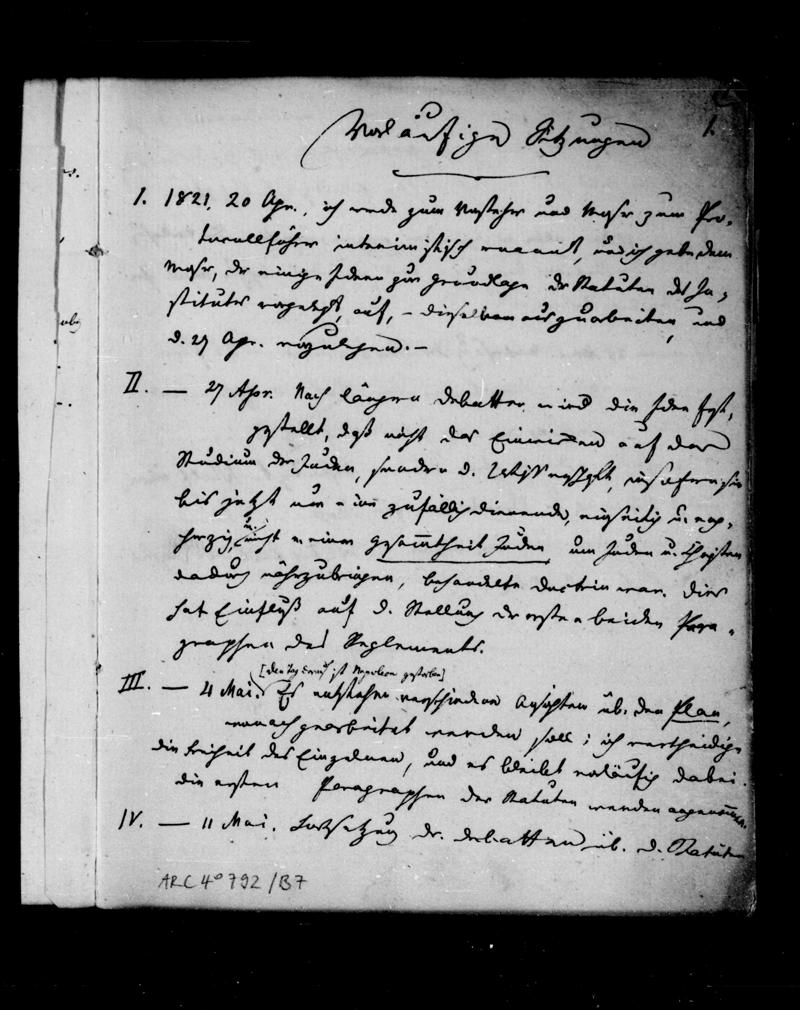 1.
Vorläufige Sitzungen
I. 1821, 20 Apr., ich werde zum Vorsteher und Moser zum Pro-
tocollführer interimistisch ernannt, und ich gebe dem
Moser, der einige Ideen zur Grundlage der Statuten des In-
stitutes vorgelegt, auf, – dieselben auszuarbeiten, und
d. 27 Apr. vorzulegen. –
II. — 27 Apr. Nach längern Debatten wird die Idee fest-
gestellt, daß nicht das Einwirken auf das
Studium der Juden, sondern d. insofern sie
bis jetzt nur zufällig dienende, einseitig u. eng-
herzig, u. nicht einer Gesammtheit Juden um Juden u. Christen
dadurch näherzubringen, behandelte Doctrin war. Dies
hat Einfluß auf d. Stellung der ersten beiden Para-
graphen des Reglements.
[den Tag darauf ist Napoleon gestorben]
III. — 4 Mai. Es entstehen verschiedene Ansichten üb. den Plan,
wonach gearbeitet werden soll; ich vertheidige
die Freiheit des Einzelnen, und es bleibt vorläufig dabei.
die ersten Paragraphen der Statuten werden angenommen.
IV. — 11 Mai. Fortsetzung der Debatten üb. d. Statuten
ARC 4° 792/B7